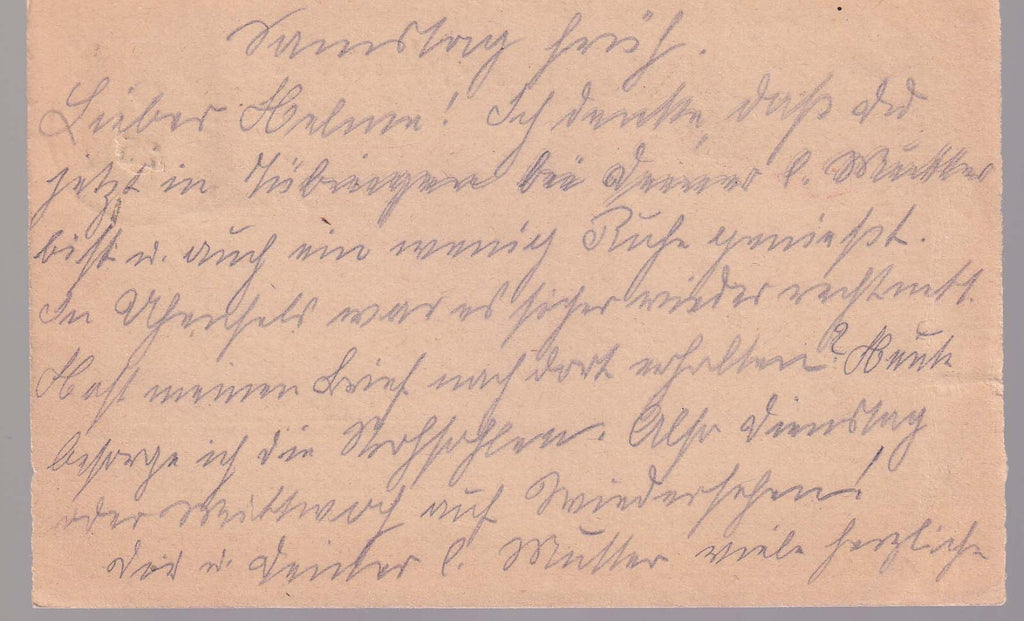 Samstag früh.
Lieber Helme! Ich denke, daß Du
jetzt in Tübingen bei Deiner l. Mutter
bist u. auch ein wenig Ruhe genießt.
In war es sicher wieder recht nett.
Hast meinen Brief nach dort erhalten? Heute
besorge ich die Also Dienstag
oder Mittwoch auf Wiedersehen!
Dir u. Deiner l. Mutter viele herzliche